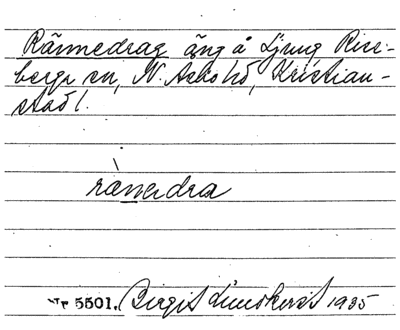 Rännedrag äng å Ljung Rise-
berga sn, N. Åsbo hd, Kristian-
stad l.
rànerdra
Nr 5501. Birgit Lundkvist 1935